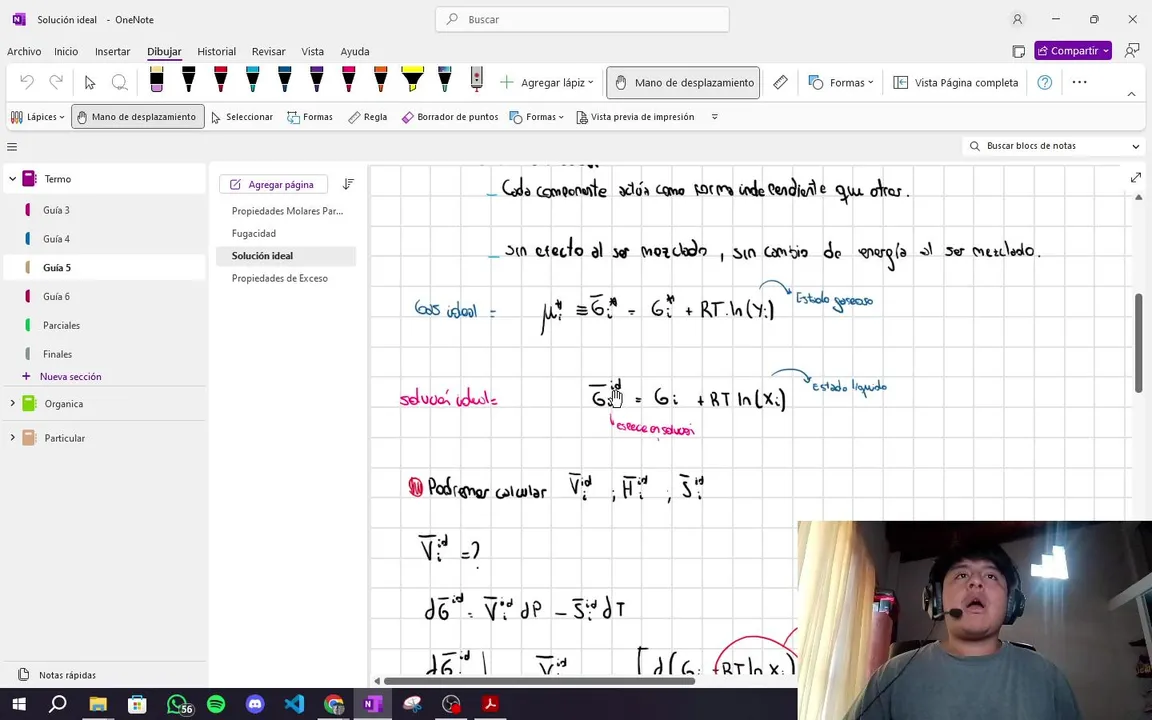 Solución ideal - OneNote
Buscar
Archivo Inicio Insertar Dibujar Historial Revisar Vista Ayuda
Compartir
Agregar lápiz
Mano de desplazamiento
Formas
Vista Página completa
Lápices
Mano de desplazamiento
Seleccionar
Formas
Regla
Borrador de puntos
Formas
Vista previa de impresión
Buscar blocs de notas
Termo
Guía 3
Guía 4
Guía 5
Guía 6
Parciales
Finales
+ Nueva sección
Organica
Particular
Notas rápidas
Agregar página
Propiedades Molares Par...
Fugacidad
Solución ideal
Propiedades de Exceso
_ Cada componente actúa como forma independiente que otras.
_ sin efecto al ser mezclado, sin cambio de energía al ser mezclado.
Gas ideal = μᵢ* ≡ G̅ᵢ* = Gᵢ* + RT.ln(yᵢ) Estado gaseoso
solución ideal = G̅ᵢ^id = Gᵢ + RT ln(xᵢ) Estado liquido
especie en soluci
Podremos calcular V̅ᵢ^id ; H̅ᵢ^id ; S̅ᵢ^id
V̅ᵢ^id = ?
dG̅^id = V̅ᵢ^id dP - S̅ᵢ^id dT
dG̅^id | V̅ᵢ^id [d(Gᵢ + RT ln xᵢ)
56